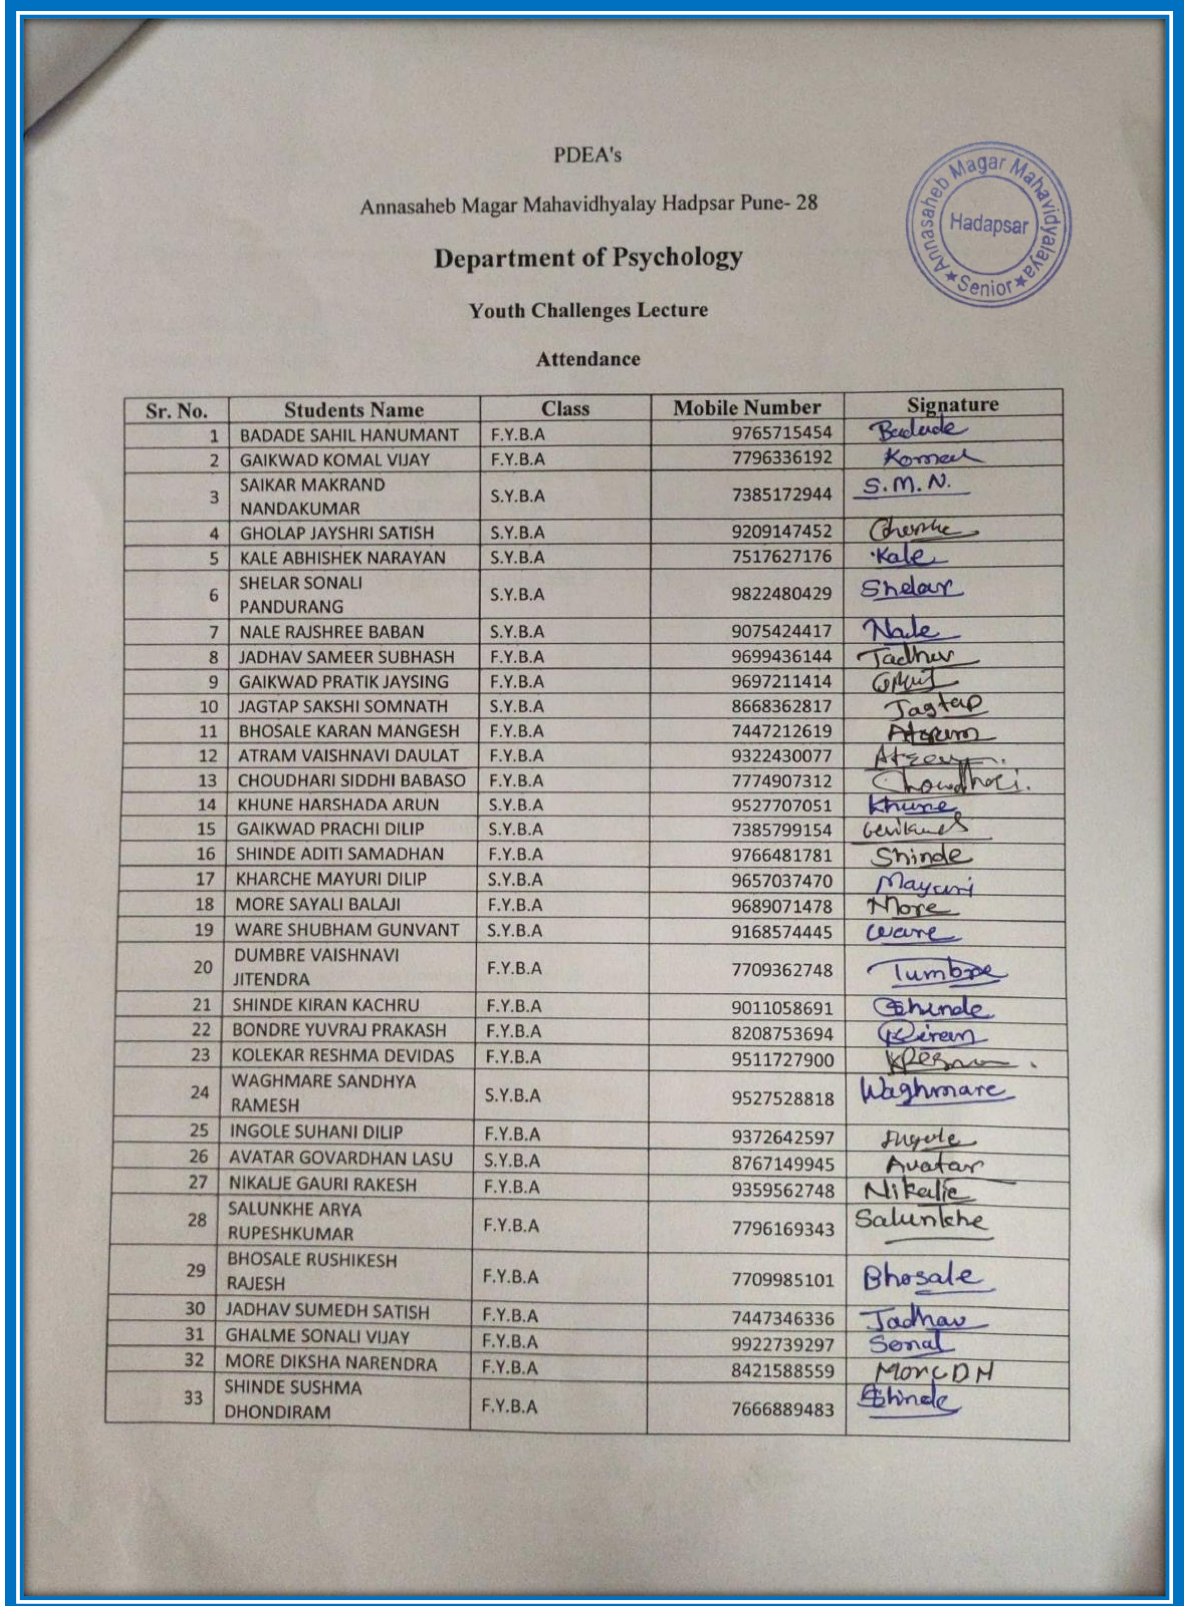 PDEA's
Annasaheb Magar Mahavidhyalay Hadpsar Pune- 28
Annasaheb Magar Mahavidyalaya
Hadapsar
★ Senior ★
Department of Psychology
Youth Challenges Lecture
Attendance
Sr. No. Students Name Class Mobile Number Signature
1 BADADE SAHIL HANUMANT F.Y.B.A 9765715454 Badade
2 GAIKWAD KOMAL VIJAY F.Y.B.A 7796336192 Komal
3 SAIKAR MAKRAND
NANDAKUMAR S.Y.B.A 7385172944 S.M.N.
4 GHOLAP JAYSHRI SATISH S.Y.B.A 9209147452
5 KALE ABHISHEK NARAYAN S.Y.B.A 7517627176 Kale
6 SHELAR SONALI
PANDURANG S.Y.B.A 9822480429 Shelar
7 NALE RAJSHREE BABAN S.Y.B.A 9075424417 Nale
8 JADHAV SAMEER SUBHASH F.Y.B.A 9699436144 Jadhav
9 GAIKWAD PRATIK JAYSING F.Y.B.A 9697211414
10 JAGTAP SAKSHI SOMNATH S.Y.B.A 8668362817 Jagtap
11 BHOSALE KARAN MANGESH F.Y.B.A 7447212619
12 ATRAM VAISHNAVI DAULAT F.Y.B.A 9322430077
13 CHOUDHARI SIDDHI BABASO F.Y.B.A 7774907312 Choudhari.
14 KHUNE HARSHADA ARUN S.Y.B.A 9527707051 Khune
15 GAIKWAD PRACHI DILIP S.Y.B.A 7385799154
16 SHINDE ADITI SAMADHAN F.Y.B.A 9766481781 Shinde
17 KHARCHE MAYURI DILIP S.Y.B.A 9657037470 Mayuri
18 MORE SAYALI BALAJI F.Y.B.A 9689071478 More
19 WARE SHUBHAM GUNVANT S.Y.B.A 9168574445 Ware
20 DUMBRE VAISHNAVI
JITENDRA F.Y.B.A 7709362748 Tumbre
21 SHINDE KIRAN KACHRU F.Y.B.A 9011058691 Shinde
22 BONDRE YUVRAJ PRAKASH F.Y.B.A 8208753694 Kiran
23 KOLEKAR RESHMA DEVIDAS F.Y.B.A 9511727900
24 WAGHMARE SANDHYA
RAMESH S.Y.B.A 9527528818 Waghmare
25 INGOLE SUHANI DILIP F.Y.B.A 9372642597 Ingole
26 AVATAR GOVARDHAN LASU S.Y.B.A 8767149945 Avatar
27 NIKALJE GAURI RAKESH F.Y.B.A 9359562748 Nikalje
28 SALUNKHE ARYA
RUPESHKUMAR F.Y.B.A 7796169343 Salunkhe
29 BHOSALE RUSHIKESH
RAJESH F.Y.B.A 7709985101 Bhosale
30 JADHAV SUMEDH SATISH F.Y.B.A 7447346336 Jadhav
31 GHALME SONALI VIJAY F.Y.B.A 9922739297 Sonal
32 MORE DIKSHA NARENDRA F.Y.B.A 8421588559 More DN
33 SHINDE SUSHMA
DHONDIRAM F.Y.B.A 7666889483 Shinde